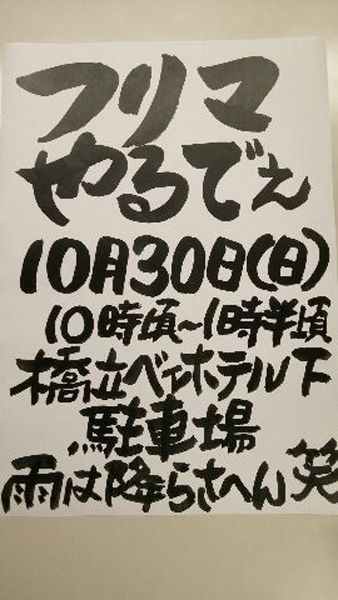 フリマ
やるでぇ
10月30日(日)
10時頃~1時半頃
橋立ベイホテル下
駐車場
雨は降らさへん 笑